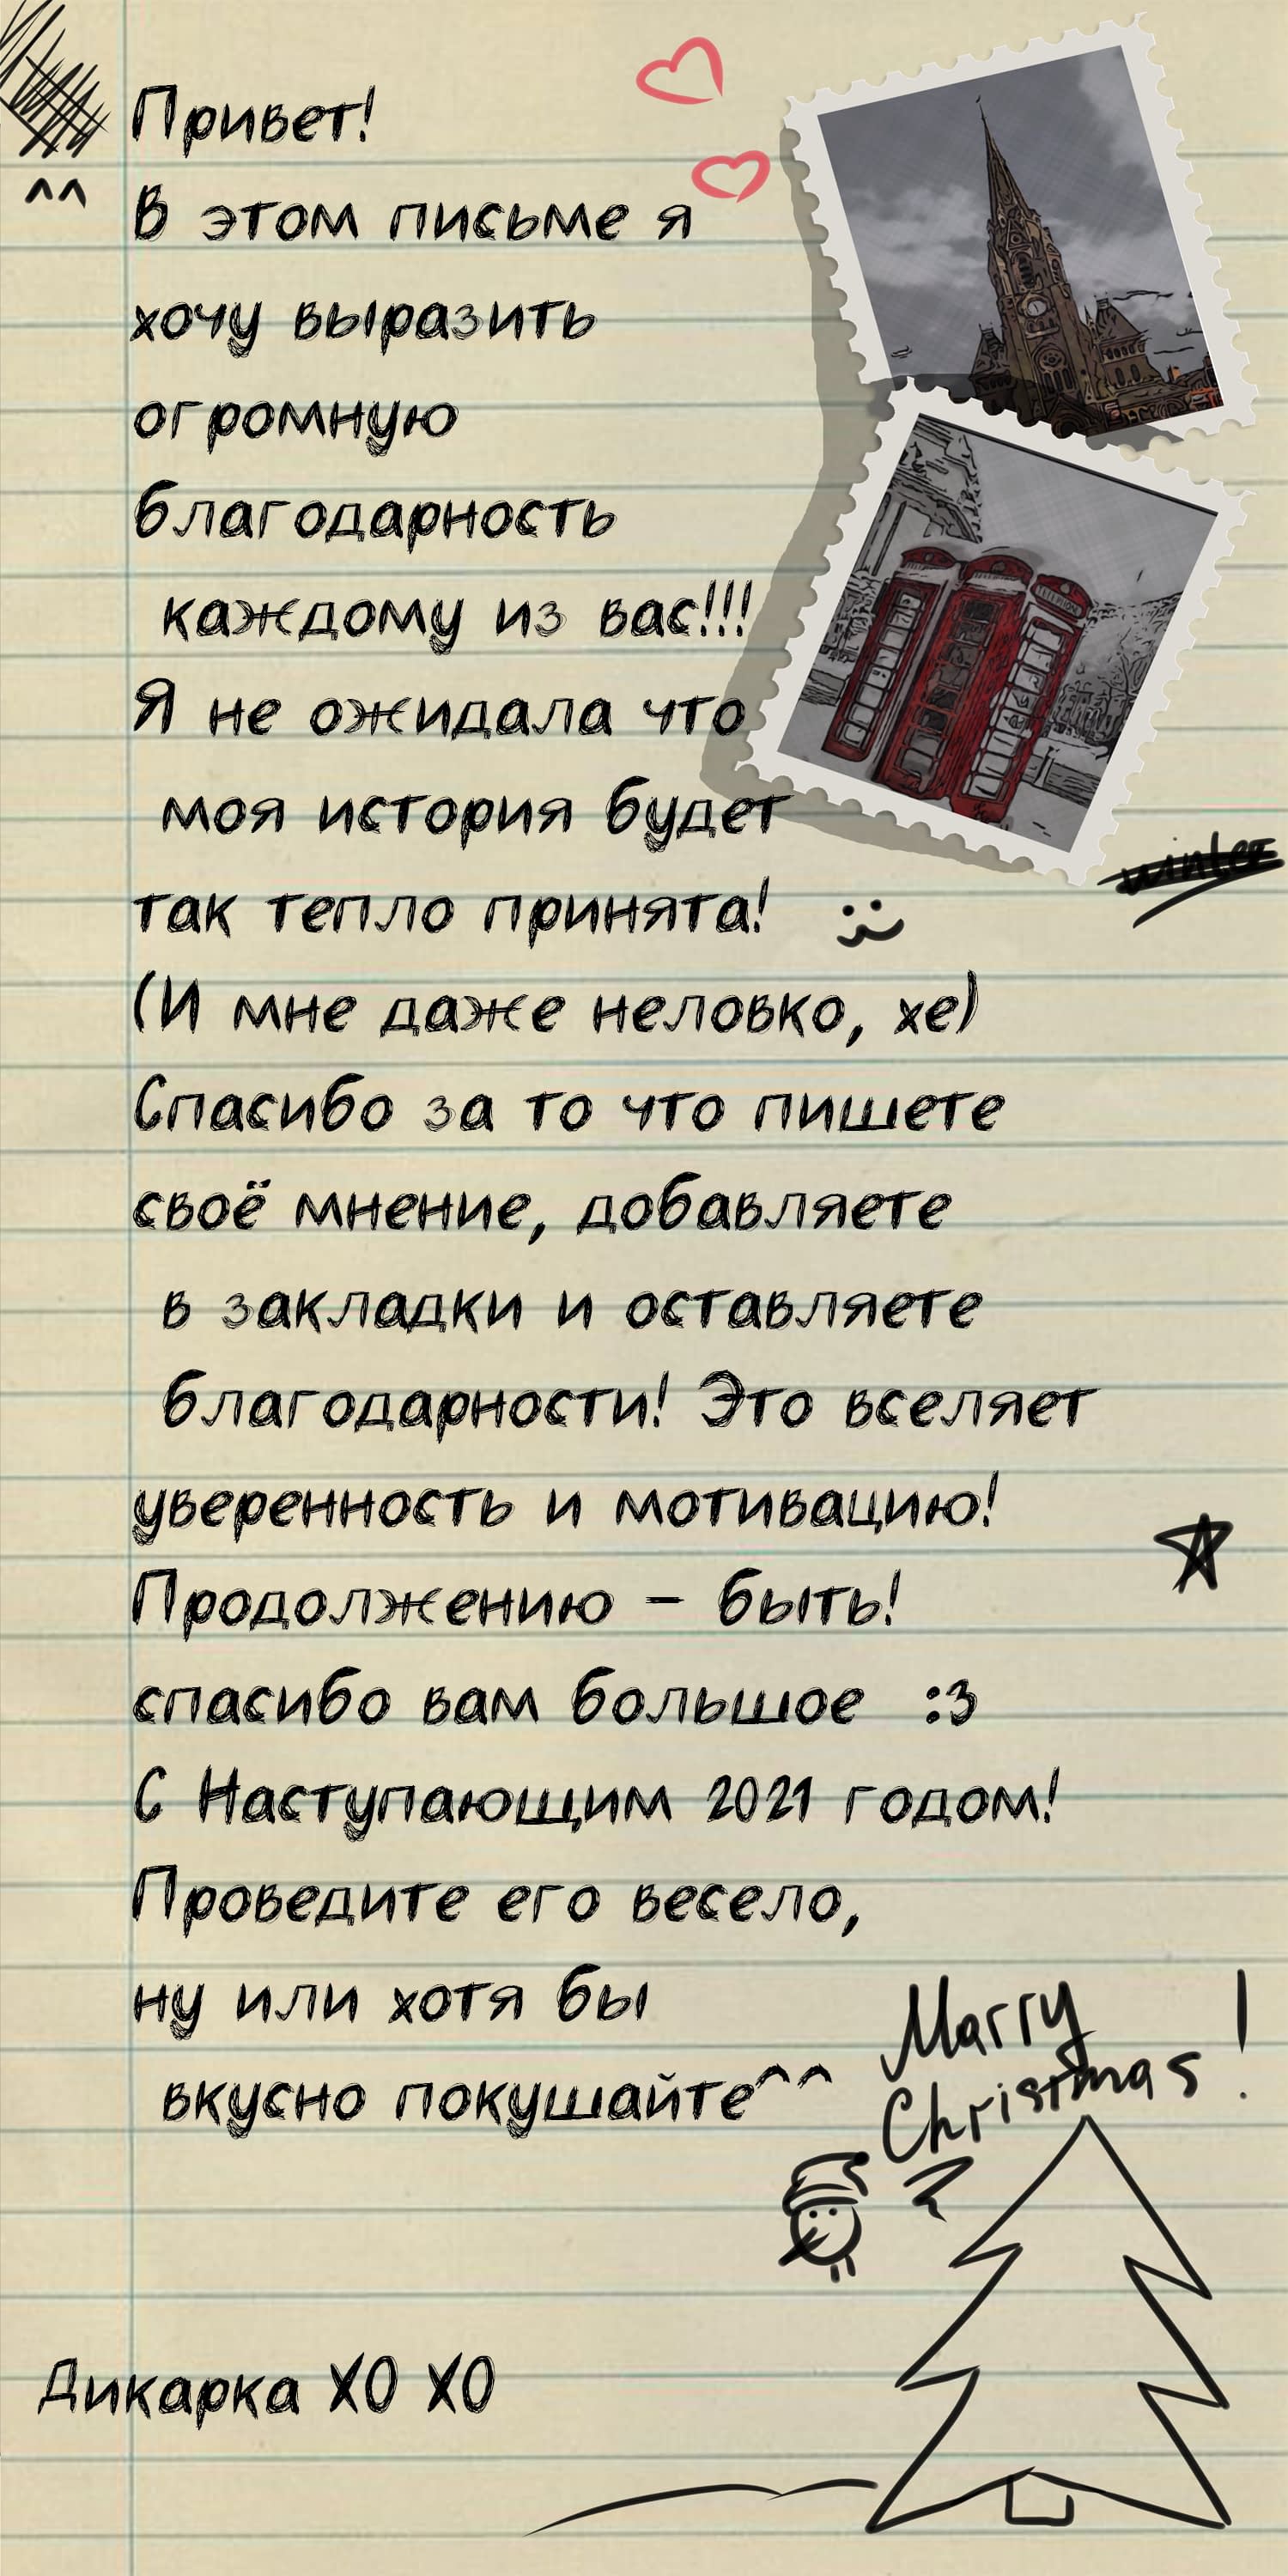 Привет!
^^
В этом письме я
хочу выразить
огромную
благодарность
каждому из вас!!!
Я не ожидала что
моя история будет
так тепло принята!
(И мне даже неловко, хе)
Спасибо за то что пишете
своё мнение, добавляете
в закладки и оставляете
благодарности! Это вселяет
уверенность и мотивацию!
Продолжению - быть!
спасибо вам большое :3
С Наступающим 2021 годом!
Проведите его весело,
ну или хотя бы
вкусно покушайте^^
TELEPHONE
winter
Marry
Christmas!
Дикарка XO XO